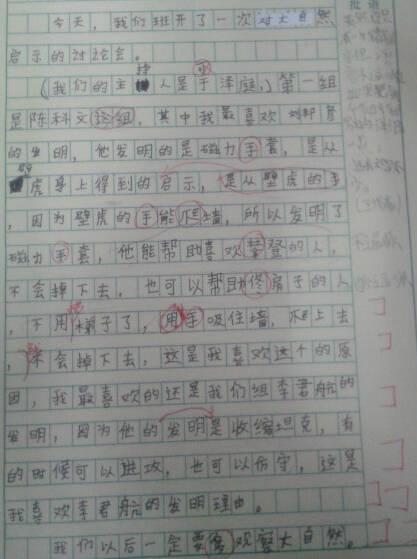 今天，我们班开了一次对大自然
启示的讨论会。
(我们的主持人是于泽庭，)第一组
是陈科文这组，其中我最喜欢刘邦
的发明，他发明的是磁力手套，是从
壁虎身上得到的启示，是从壁虎的手
，因为壁虎的手能爬墙，所以发明了
磁力手套，他能帮助喜欢攀登的人，
不会掉下去，也可以帮助修房子的人
，不用梯子了，用手吸住墙，爬上去
，来会掉下去，这是我喜欢这个的原
因，我最喜欢的还是我们组李君航的
发明，因为他的发明是收缩坦克，有
的时候可以进攻，也可以防守，这是
我喜欢李君航的发明理由。
我们以后一定要多观察大自然。
批语